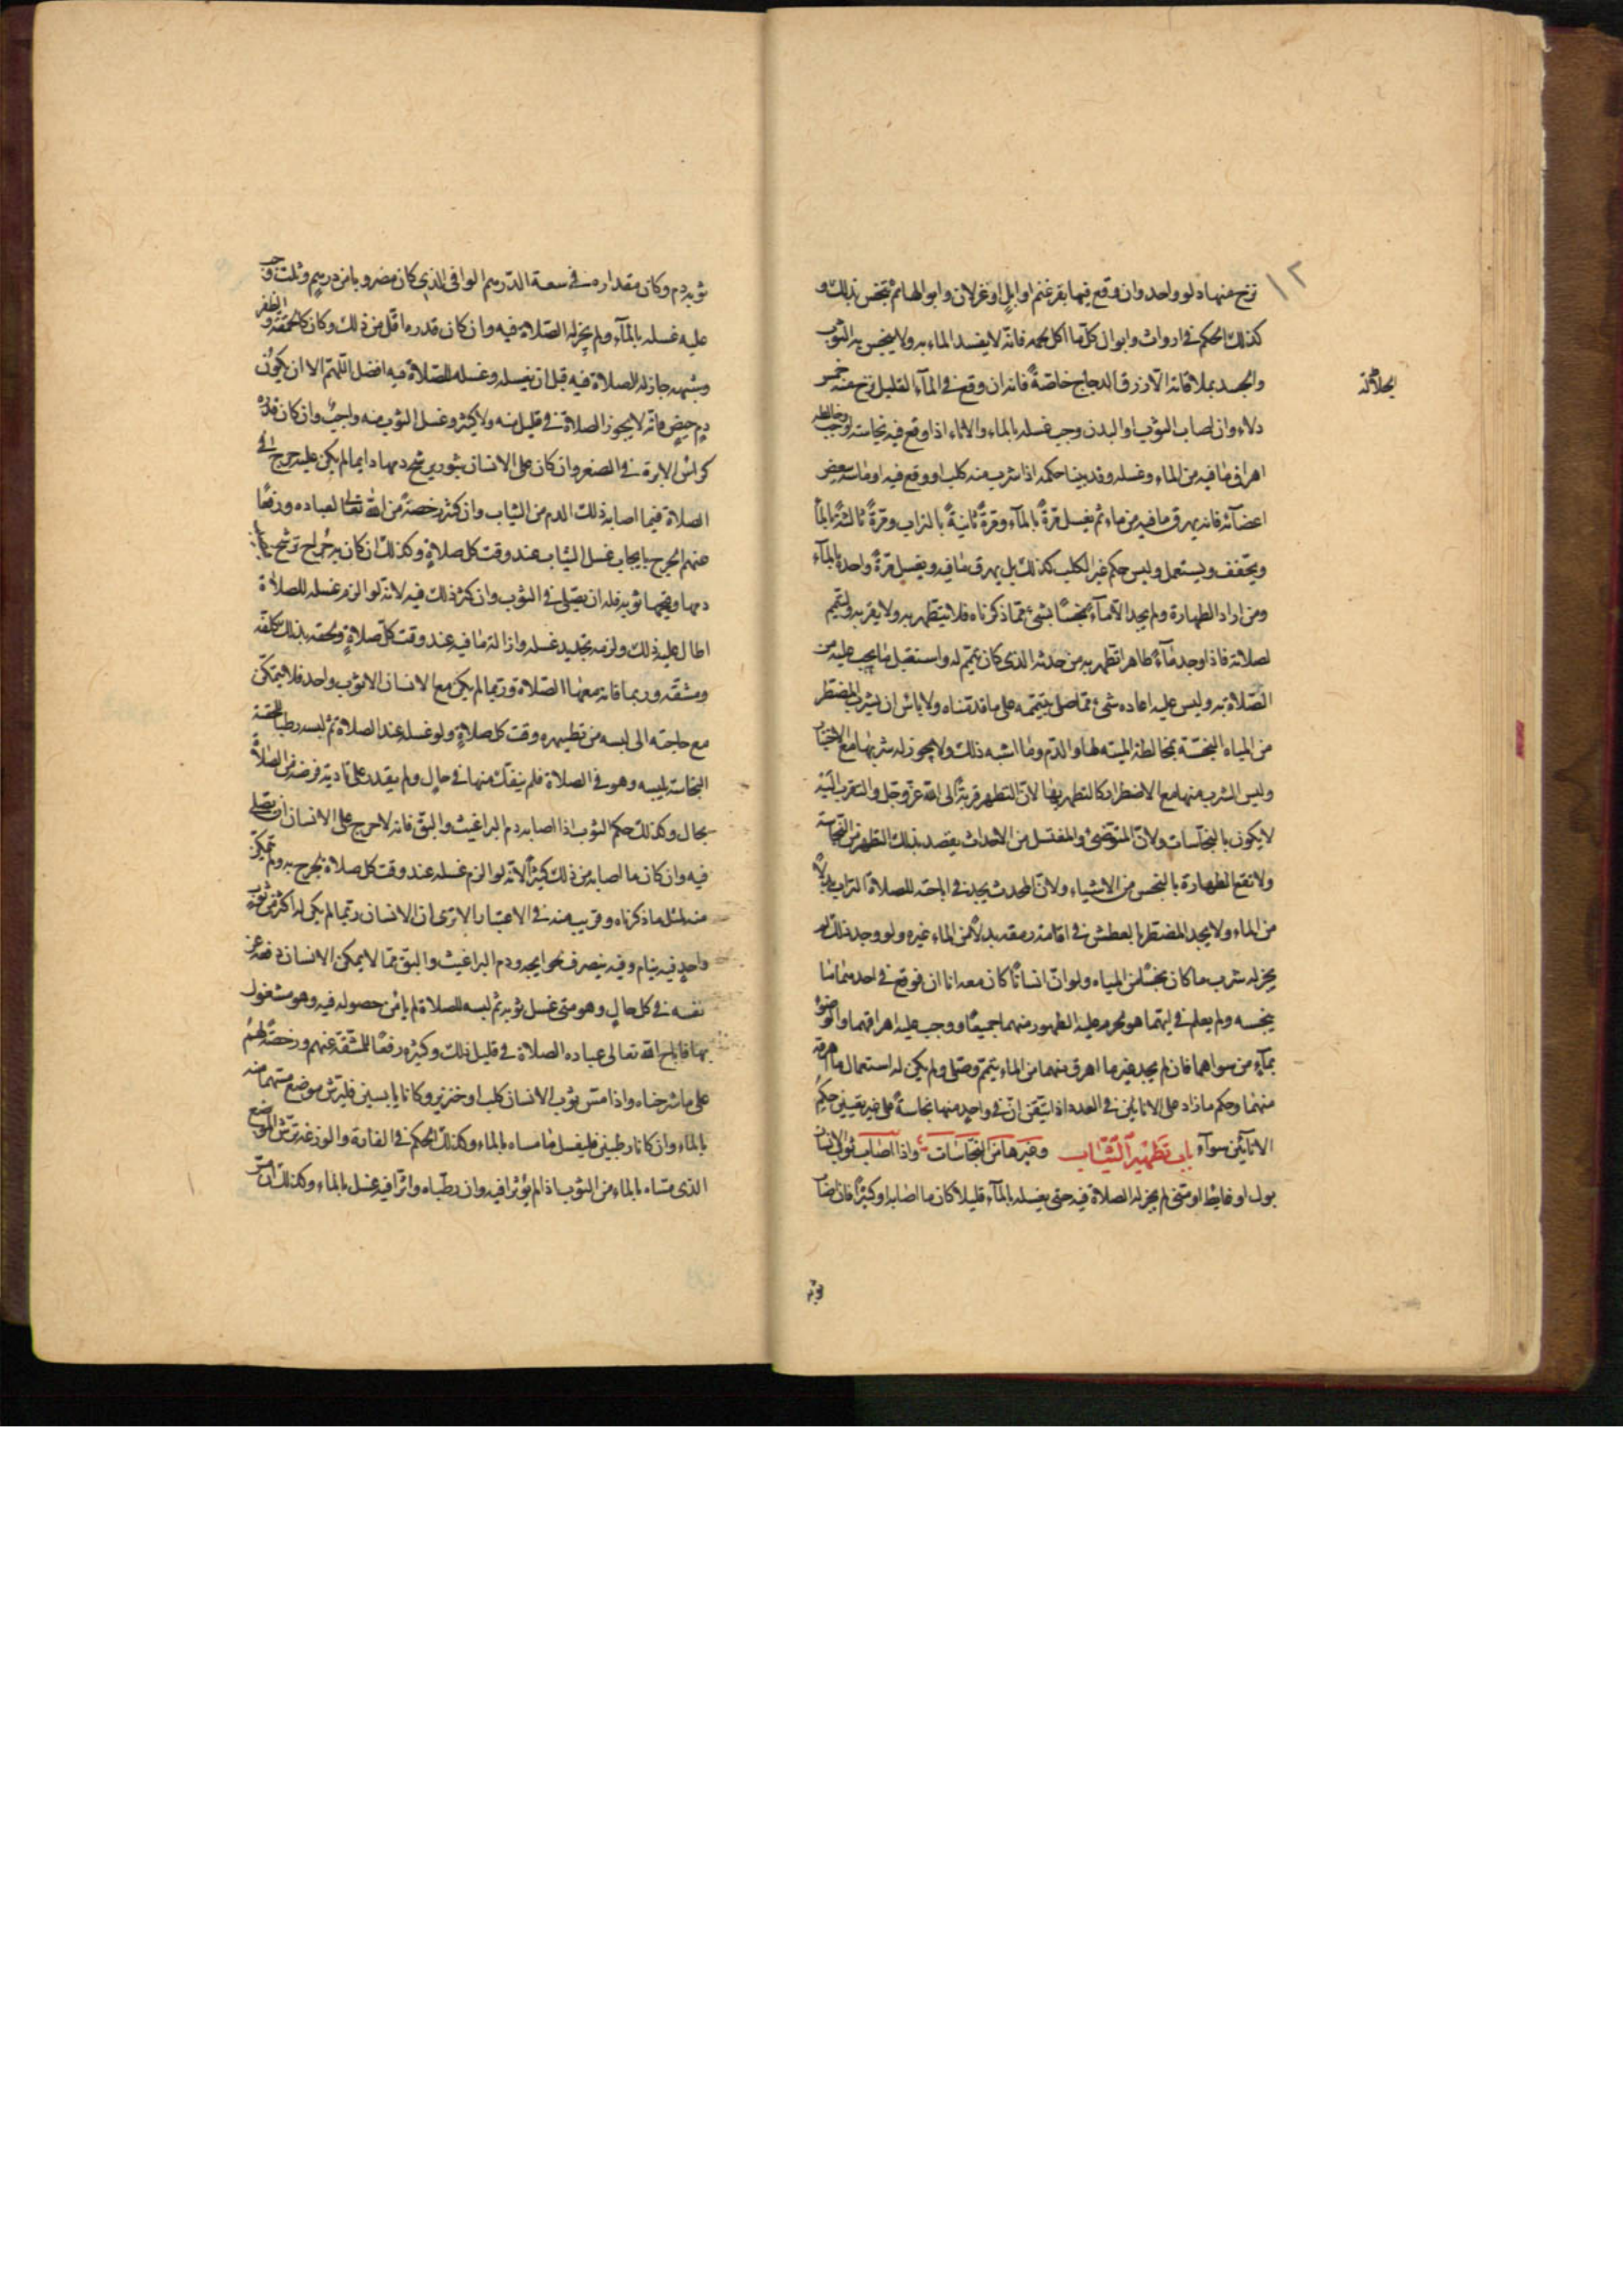 ١٢
نزح عنها دلو واحد وان وقع فيها بقر غنم او ابل او غزلان وابوالها لم ينجس بذلك و
كذلك الحكم في ارواث وابوال كل ما اكل لحمه فانه لا يفسد الماء به ولا ينجس به الثوب
والجسد بملاقاته الا زرق الدجاج خاصةً فانه ان وقع في الماء القليل نزح منه خمس
الجلالة
دلاء وان اصاب الثوب او البدن وجب غسله بالماء والاناء اذا وقع فيه نجاسة وخالطه وجب
اهراق ما فيه من الماء وغسله وقد بينا حكمه اذا شرب منه كلب او وقع فيه او ماسه ببعض
اعضآئه فانه يهرق ما فيه من ماء ثم يغسل مرةً بالمآء ومرةً ثانيةً بالتراب ومرةً ثالثةً بالمآ
ويجفف ويستعمل وليس حكم غير الكلب كذلك بل يهرق ما فيه ويغسل مرةً واحدة بالمآء
ومن اراد الطهارة ولم يجد الا مآءً نجسًا بشئ مما ذكرناه فلا يتطهر به ولا يقربه وليتيمم
لصلاته فاذا وجد مآءً طاهرا تطهر به من حدثه الذى كان تيمم له واستقبل ما يجب عليه من
الصلاة به وليس عليه اعاده شئ مما صلى بتيممه على ما قدمناه ولا باس ان يشرب المضطر
من المياه النجسة بمخالطة الميته لها والدم وما اشبه ذلك ولا يجوز له شربها مع الاختيار
وليس الشرب منها مع الاضطرار كالتطهر بها لان التطهر قربةً الى الله عز وجل والتقرب اليه
لا يكون بالنجاسات ولان المتوضئ والمغتسل من الاحداث يقصد بذلك التطهر من النجاسة
ولا تقع الطهارة بالنجس من الاشياء ولان المحدث يجد في اباحته للصلاة التراب بدلاً
من الماء ولا يجد المضطر بالعطش في اقامة رمقه بدلاً من الماء غيره ولو وجد ذلك لم
يجز له شرب ما كان نجسًا من المياه ولو ان انسانًا كان معه اناان فوقع في احدهما ما
ينجسه ولم يعلم في ايهما هو لحرم عليه الطهور منهما جميعًا ووجب عليه اهراقهما والوضوء
بمآء من سواهما فان لم يجد غير ما اهرق منهما من الماء يتيمم وصلى ولم يكن له استعمال ما اهرقه
منهما وحكم ما زاد على الاناأين في العدد اذا تيقن ان في واحد منها نجاسةً على غير تعيين حكم
الاناأين سوآء باب تطهير الثياب وغيرها من النجاسات واذا اصاب ثوب الانسان
بول او غايط او منى لم يجز له الصلاة فيه حتى يغسله بالمآء قليلاً كان ما اصابه او كثيرًا فان اصاب
ثوبه
ثوبه دم وكان مقداره في سعة الدرهم الوافى الذي كان مضروبا من درهم وثلث وجب
عليه غسله بالمآء ولم يجز له الصلاة فيه وان كان قدره اقل من ذلك وكان كالحمصة والظفر
وشبهه جاز له الصلاة فيه قبل ان يغسله وغسله للصلاة فيه افضل اللهم الا ان يكون
دم حيض فانه لا يجوز الصلاة في قليل منه ولا كثير وغسل الثوب منه واجب وان كان قدره
كراس الابرة في الصغر وان كان على الانسان بثور يرشح دمها دايما لم يكن عليه حرج في
الصلاة فيما اصابه ذلك الدم من الثياب وان كثر رخصةً من الله تعالى لعباده ورفعًا
عنهم الحرج بايجاب غسل الثياب عند وقت كل صلاة وكذلك ان كان به جراح ترشح
دمها وقيحها ثوبه فله ان يصلى في الثوب وان كثر ذلك فيه لانه لو الزم غسله للصلاة
اطال عليه ذلك ولزمه تجديد غسله وازالة ما فيه عند وقت كل صلاة ولحقه بذلك كلفة
ومشقه وربما فاته معها الصلاة وربما لم يكن مع الانسان الا ثوب واحد فلا يتمكن
مع حاجته الى لبسه من تطهيره وقت كل صلاة ولو غسله عند الصلاة ثم لبسه رطبا للحقته
النجاسة بلبسه وهو في الصلاة فلم ينفك منها في حال ولم يقدر على تادية فرضه من الصلاة
بحال وكذلك حكم الثوب اذا اصابه دم البراغيث والبق فانه لا حرج على الانسان ان يصلى
فيه وان كان ما اصابه من ذلك كثيرًا لانه لو الزم غسله عند وقت كل صلاة لحرج به ولم يتمكن
منه لمثل ما ذكرناه وقريب منه في الاعتبار الا ترى ان الانسان ربما لم يكن له اكثر من ثوب
واحد فيه ينام وفيه ينصرف لحوايجه ودم البراغيث والبق مما لا يمكن الانسان دفعه عن
نفسه في كل حال وهو متى غسل ثوبه ثم لبسه للصلاة لم يامن حصوله فيه وهو مشغول
بها فاباح الله تعالى عباده الصلاة في قليل ذلك وكثيره رفعًا للمشقة عنهم ورخصةً لهم
على ما شرحناه واذا مس ثوب الانسان كلب او خنزير وكانا يابسين فليرش موضع مسهما منه
بالماء وان كانا رطبين فليغسل ما مساه بالماء وكذلك الحكم في الفارة والوزغة يرش الموضع
الذى مساه بالماء من الثوب اذا لم يؤثرا فيه وان رطباه واثرا فيه غسل بالماء وكذلك ان مس